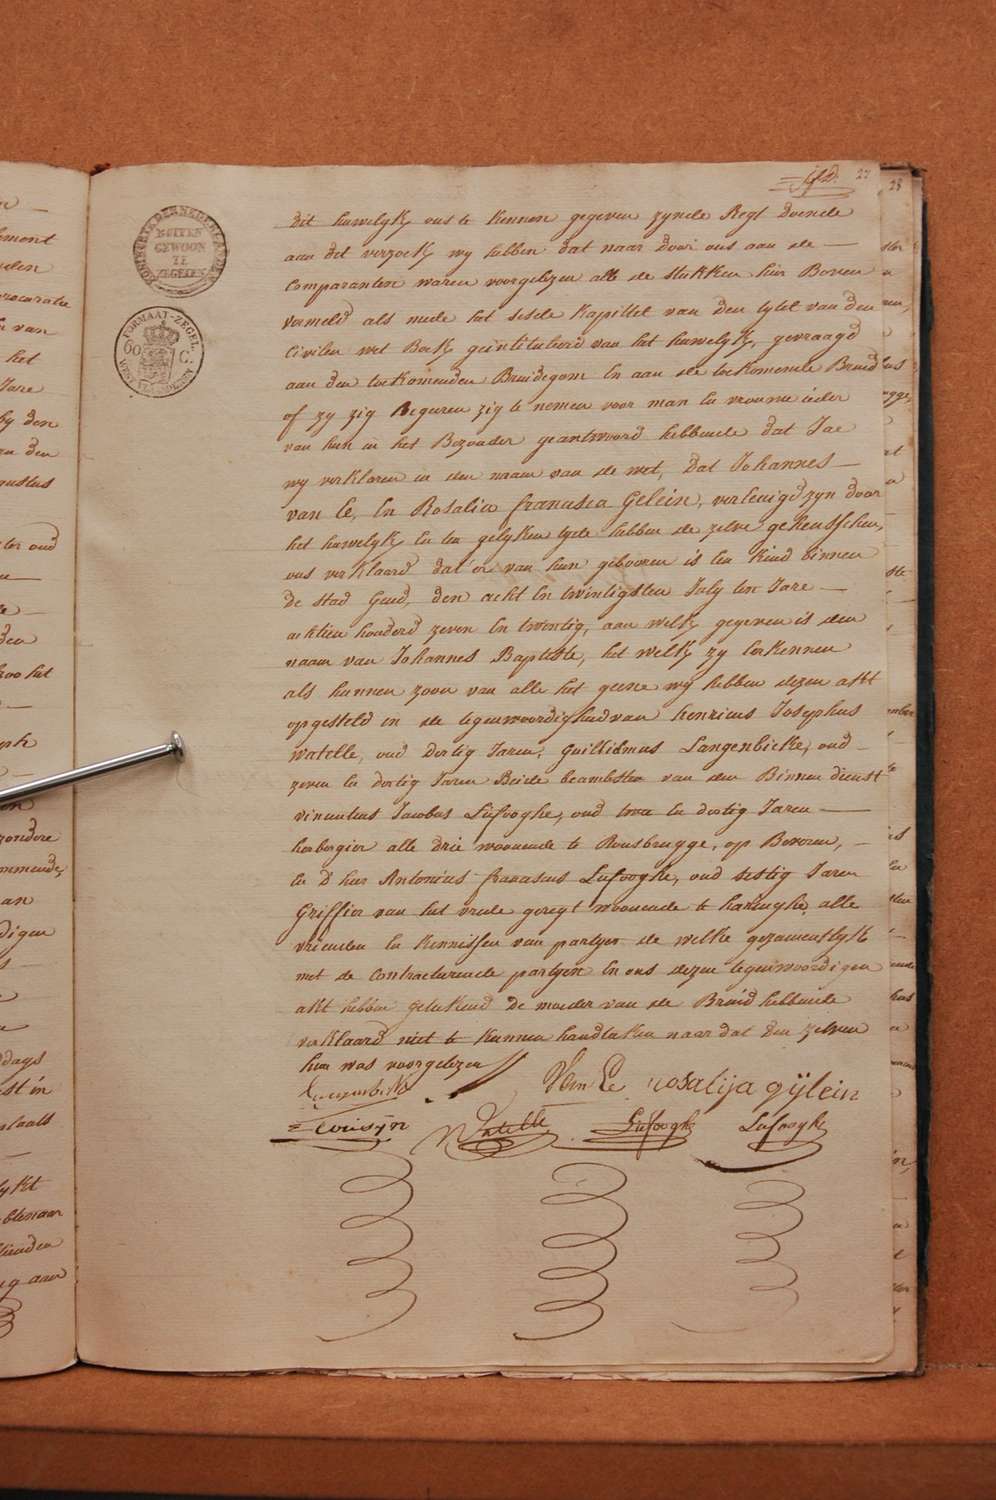 27
28
KONINGRIK DER NEDERLANDEN
BUITEN
GEWOON
TE
ZEGELEN
FORMAAT-ZEGEL
60 C.
WEST VLAANDEREN
dit huwelyk ons te kennen gegeven zynde Regt doende
aan dit verzoek wy hebben dat naar door ons aan de —
Comparanten waren voorgelezen alle de stukken hier Boven
vermeld als mede het sesde Kapittel van den tytel van den
Civilen wet Boek geintituleerd van het huwelyk, gevraagd
aan den toekomenden Bruidegom En aan de toekomende Bruid
of zy zig Begeren zig te nemen voor man En vrouwe ieder
van hun in het Bezonder geantwoord hebbende dat Jae
wy verklaren in den naam van de wet, dat Johannes —
van Ee, En Rosalia francisca Gelein, vereenigd zyn door
het huwelyk En ten gelyken tyde hebben de zelve gehensschen,
ons verklaard dat er van hun gebooren is Een Kind binnen
de stad Gend, den acht En twintigsten July ten Jare —
achtien honderd zeven En twintig, aan welk gegeven is den
naam van Johannes Baptiste, het welk zy Erkennen
als hunnen zoon van alle het geene wy hebben dezen akt
opgesteld in de tegenwoordigheid van henricus Josephus
watelle, oud dertig Jaren, Guillielmus Langenbicke, oud —
zeven En dertig Jaren Beide beambten van den Binnen dienst
vincentius Jacobus Lafooghe, oud twee En dertig Jaren —
herbergier alle drie woonende te Rousbrugge, op Beveren, —
En d'heer Antonius franciscus Lafooghe, oud sestig Jaren
Griffier van het vrede geregt woonende te haringhe, alle
vrienden En Kennissen van partyen de welke gezamentlyk
met de Contracterende partyen En ons dezen tegenwoordigen
akt hebben geteekend De moeder van de Bruid hebbende
verklaard niet te kunnen handteken naar dat den zelven
hun was voorgelezen
Van Ee rosalija gÿlein
Watelle Lafooghe Lafooghe